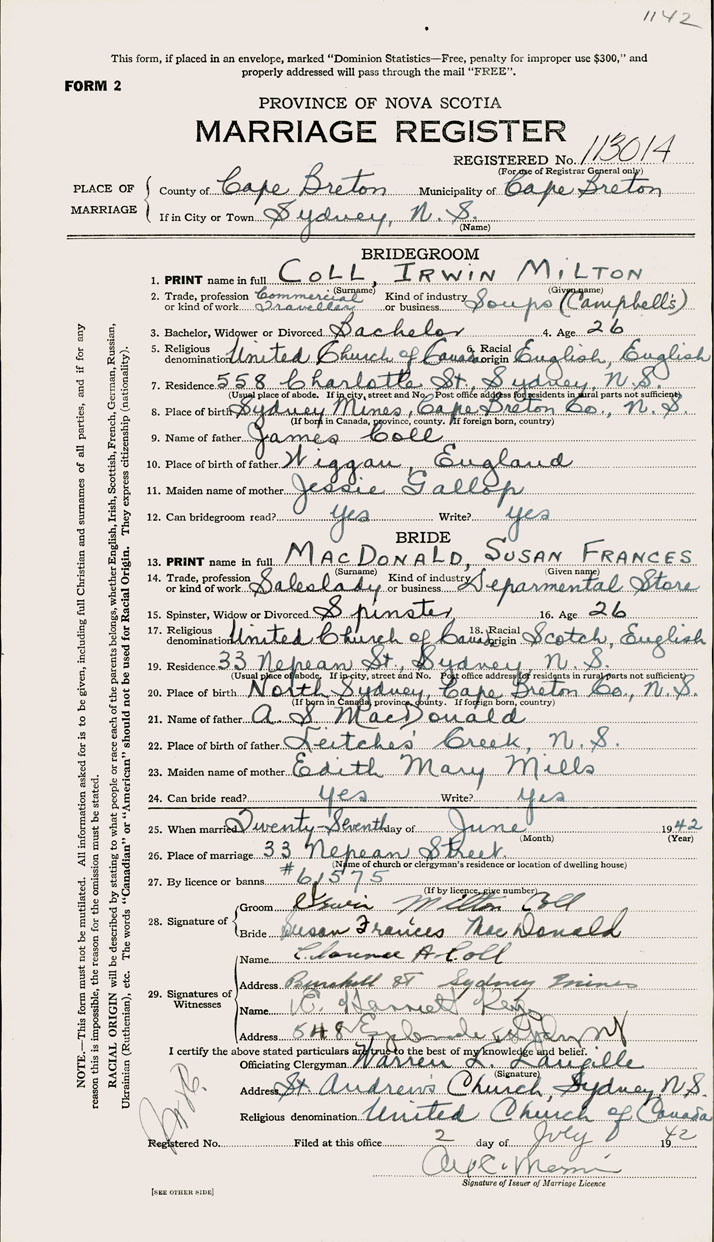 1142
This form, if placed in an envelope, marked "Dominion Statistics—Free, penalty for improper use $300," and
properly addressed will pass through the mail "FREE".
FORM 2
PROVINCE OF NOVA SCOTIA
MARRIAGE REGISTER
REGISTERED No. 113014
(For use of Registrar General only)
PLACE OF MARRIAGE
County of Cape Breton Municipality of Cape Breton
If in City or Town Sydney, N. S.
(Name)
BRIDEGROOM
1. PRINT name in full COLL, IRWIN MILTON
(Surname) (Given name)
2. Trade, profession or kind of work Commercial Traveller Kind of industry or business Soups (Campbell's)
3. Bachelor, Widower or Divorced Bachelor 4. Age 26
5. Religious denomination United Church of Canada 6. Racial origin English, English
7. Residence 558 Charlotte St., Sydney, N. S.
(Usual place of abode. If in city, street and No. Post office address for residents in rural parts not sufficient)
8. Place of birth Sydney Mines, Cape Breton Co., N. S.
(If born in Canada, province, county. If foreign born, country)
9. Name of father James Coll
10. Place of birth of father Wiggan, England
11. Maiden name of mother Jessie Gallop
12. Can bridegroom read? yes Write? yes
BRIDE
13. PRINT name in full MACDONALD, SUSAN FRANCES
(Surname) (Given name)
14. Trade, profession or kind of work Saleslady Kind of industry or business Deparmental Store
15. Spinster, Widow or Divorced Spinster 16. Age 26
17. Religious denomination United Church of Canada 18. Racial origin Scotch, English
19. Residence 33 Nepean St., Sydney, N. S.
(Usual place of abode. If in city, street and No. Post office address for residents in rural parts not sufficient)
20. Place of birth North Sydney, Cape Breton Co., N. S.
(If born in Canada, province, county. If foreign born, country)
21. Name of father A. S. MacDonald
22. Place of birth of father Leitches' Creek, N. S.
23. Maiden name of mother Edith Mary Mills
24. Can bride read? yes Write? yes
25. When married Twenty-Seventh day of June 1942
(Month) (Year)
26. Place of marriage 33 Nepean Street
(Name of church or clergyman's residence or location of dwelling house)
27. By licence or banns #61575
(If by licence, give number)
28. Signature of
Groom Irwin Milton Coll
Bride Susan Frances MacDonald
29. Signatures of Witnesses
Name Clarence A Coll
Address St Sydney Mines
Name Harriet
Address 548
I certify the above stated particulars are true to the best of my knowledge and belief.
Officiating Clergyman Warren L. Langille
(Signature)
Address St. Andrew's Church, Sydney N. S.
Religious denomination United Church of Canada
Registered No. Filed at this office 2 day of July 1942
Signature of Issuer of Marriage Licence
[SEE OTHER SIDE]
NOTE.—This form must not be mutilated. All information asked for is to be given, including full Christian and surnames of all parties, and if for any
reason this is impossible, the reason for the omission must be stated.
RACIAL ORIGIN will be described by stating to what people or race each of the parents belongs, whether English, Irish, Scottish, French, German, Russian,
Ukrainian (Ruthenian), etc. The words "Canadian" or "American" should not be used for Racial Origin. They express citizenship (nationality).